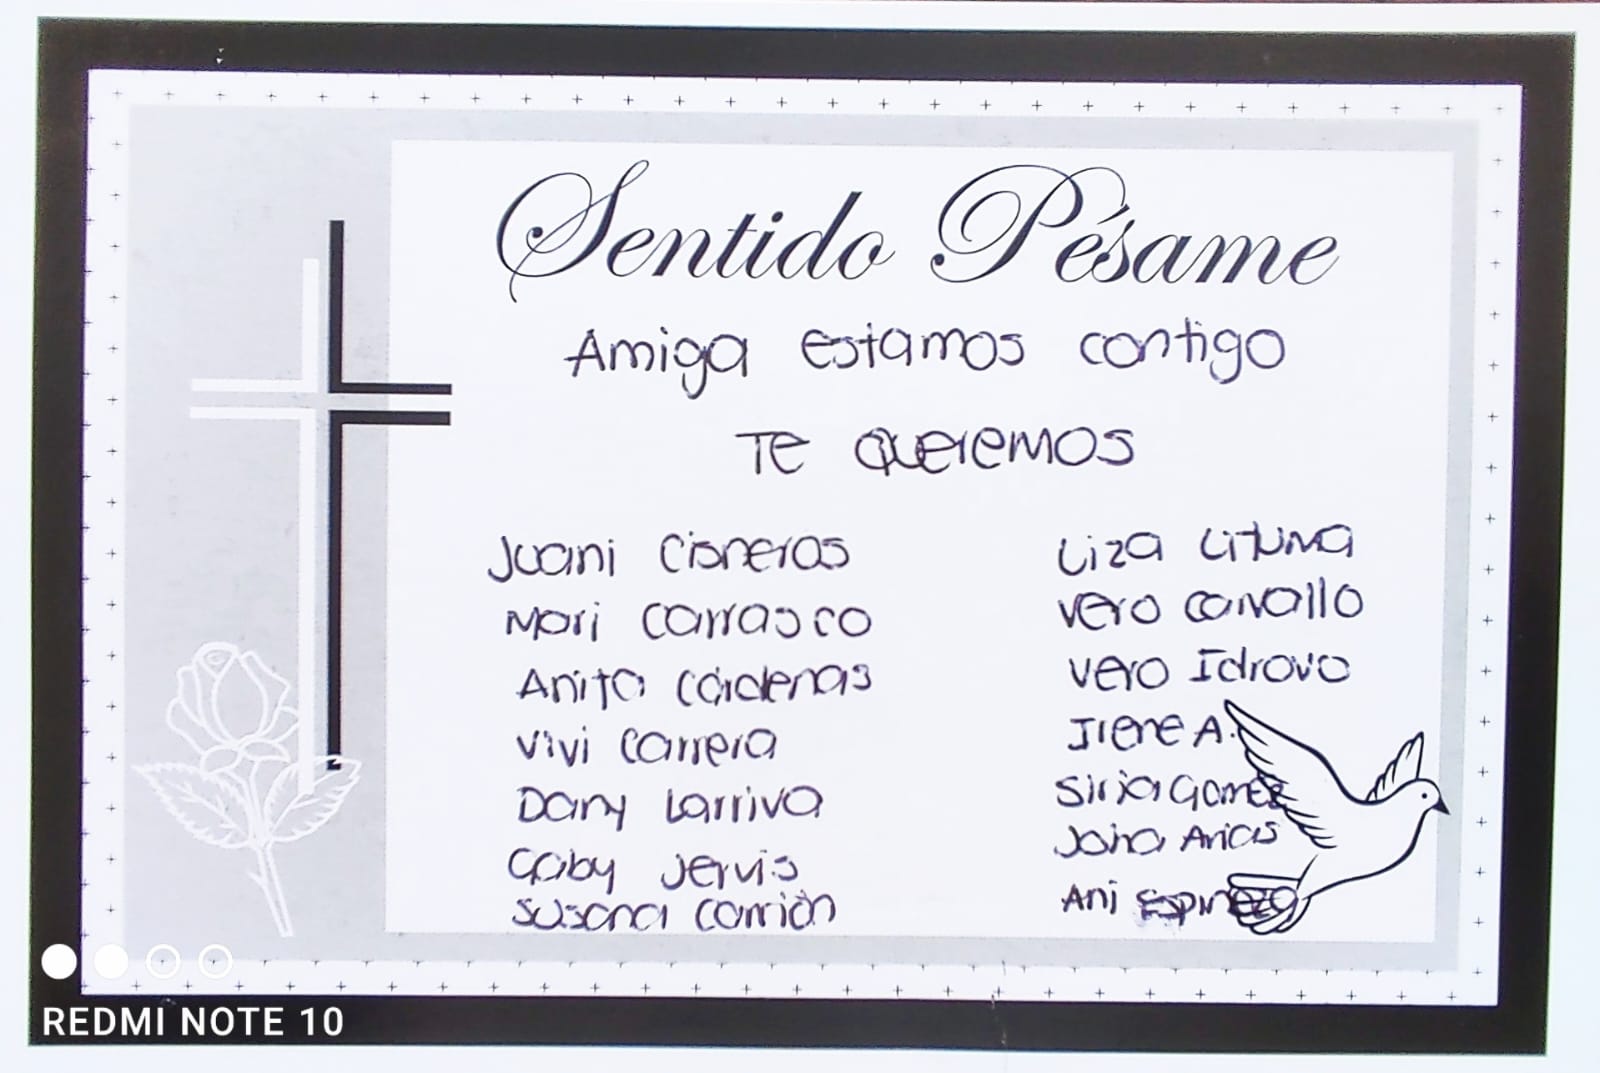 Sentido Pésame
Amiga estamos contigo
Te queremos
Juani Cisneros
Mari Carrasco
Anita Cárdenas
Vivi Carrera
Dany Larriva
Gaby Jervis
Susana Carrión
Liza Lituma
Vero Carvallo
Vero Idrovo
Irene A.
Gomez
Arias
Ani Espinoza
REDMI NOTE 10